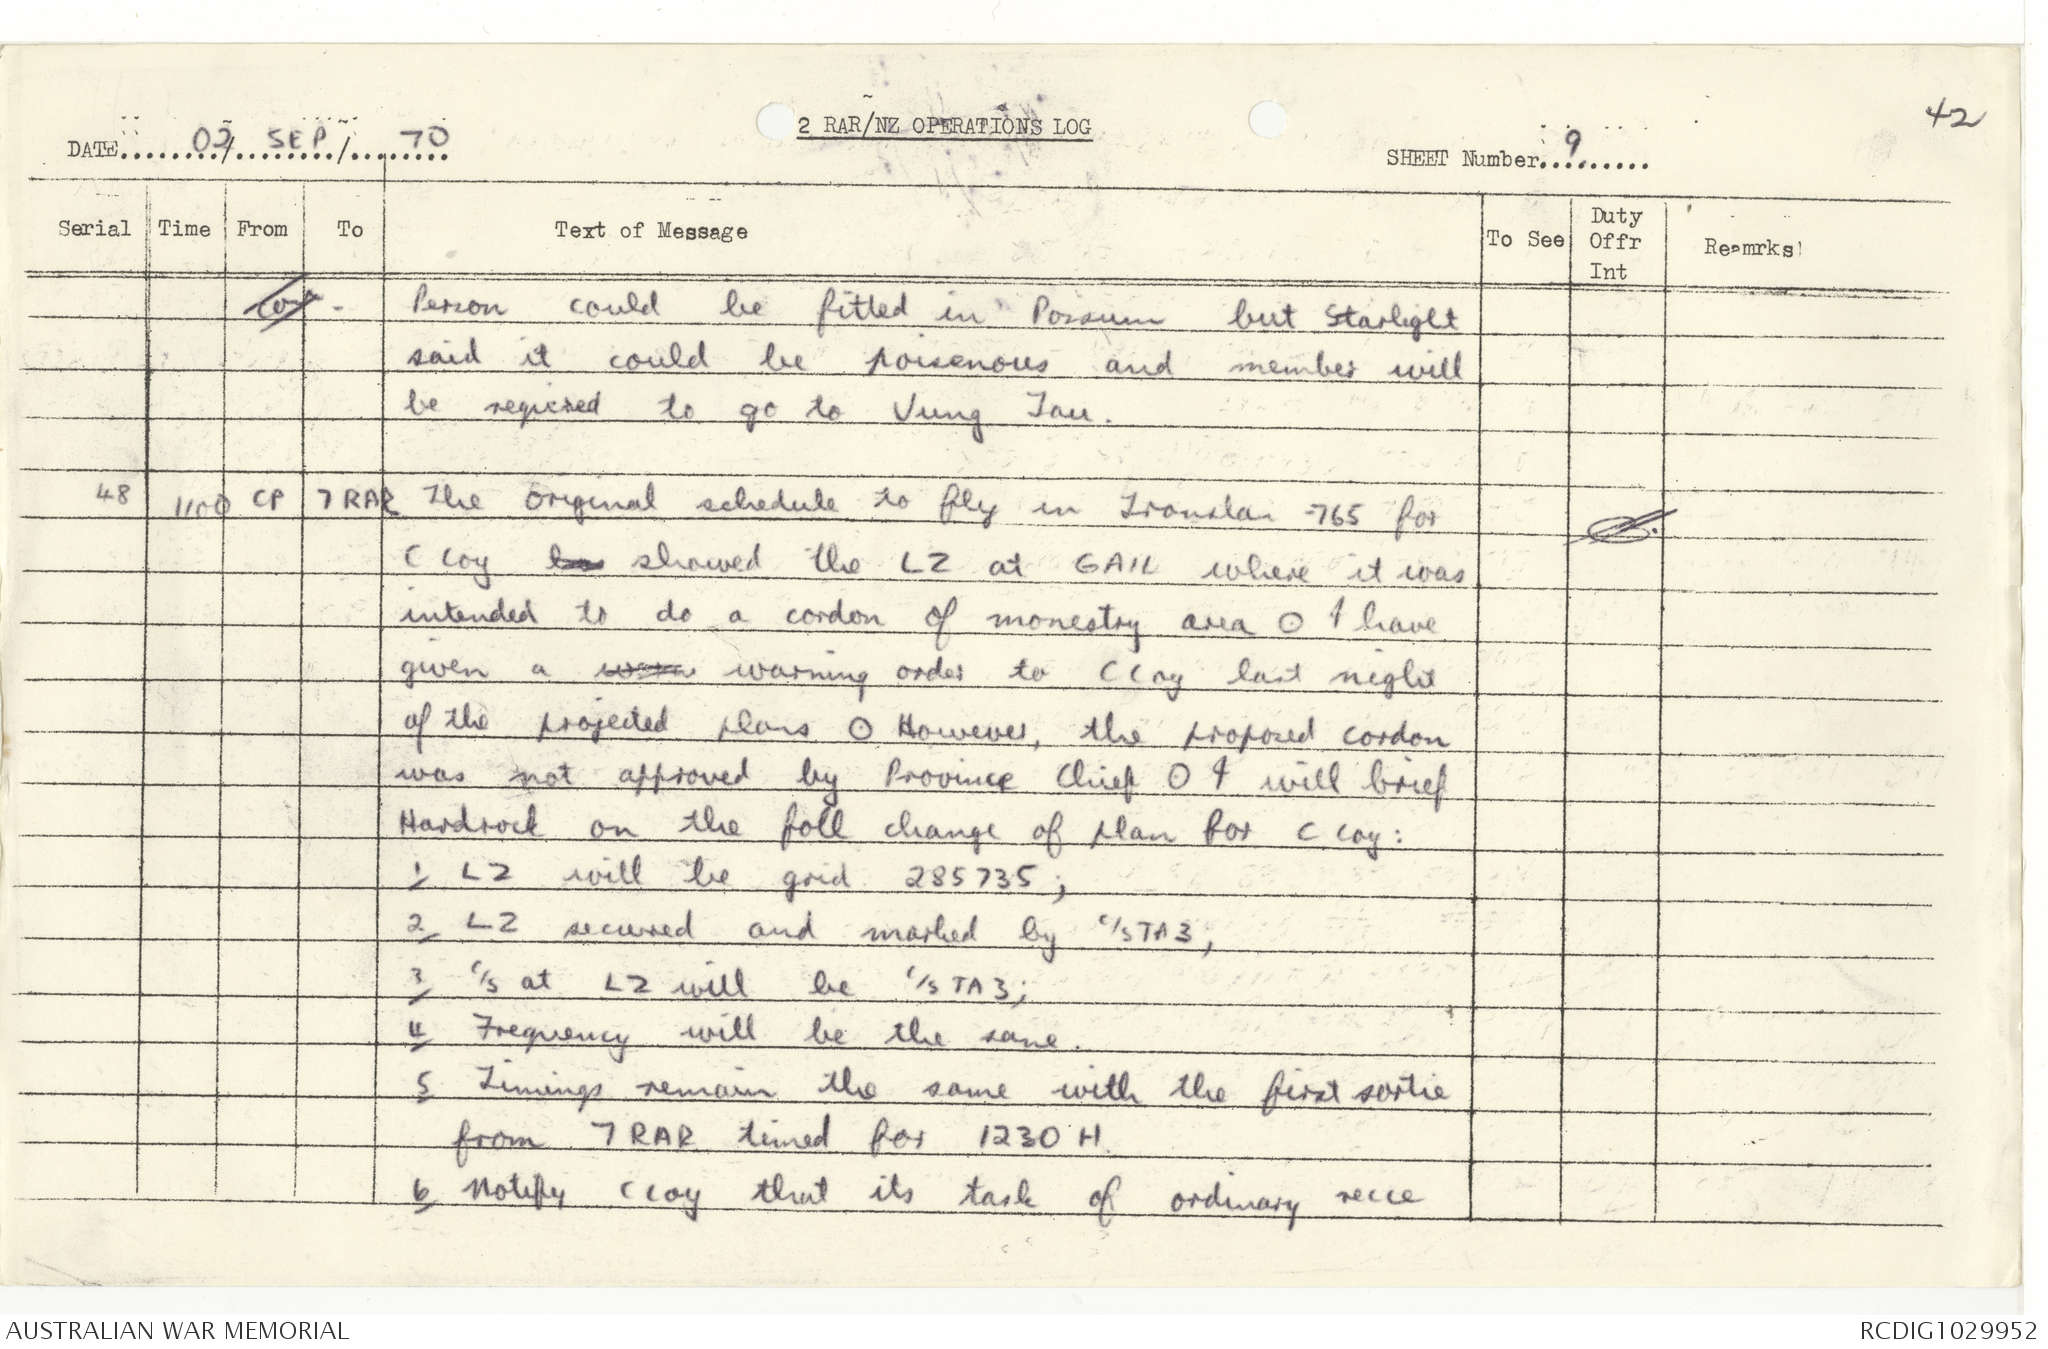 42
2 RAR/NZ OPERATIONS LOG
DATE 02/ SEP / 70
SHEET Number 9
Serial Time From To Text of Message To See Duty Offr Int Reamrks
Person could be fitted in Possum but Starlight
said it could be poisenous and member will
be requised to go to Vung Tau.
48 1100 CP 7 RAR The original schedule to fly in Iroquois 765 for
C Coy showed the LZ at GAIL where it was
intended to do a cordon of monestry area O I have
given a warning order to C Coy last night
of the projected plans O However, the proposed cordon
was not approved by Province Chief O I will brief
Hardrock on the foll change of plan for C Coy:
1 LZ will be grid 285735;
2 LZ secured and marked by C/S TA3;
3 C/S at LZ will be C/S TA3;
4 Frequency will be the same.
5 Timings remain the same with the first sortie
from 7 RAR timed for 1230 H.
6 Notify C Coy that its task of ordinary recce
AUSTRALIAN WAR MEMORIAL
RCDIG1029952